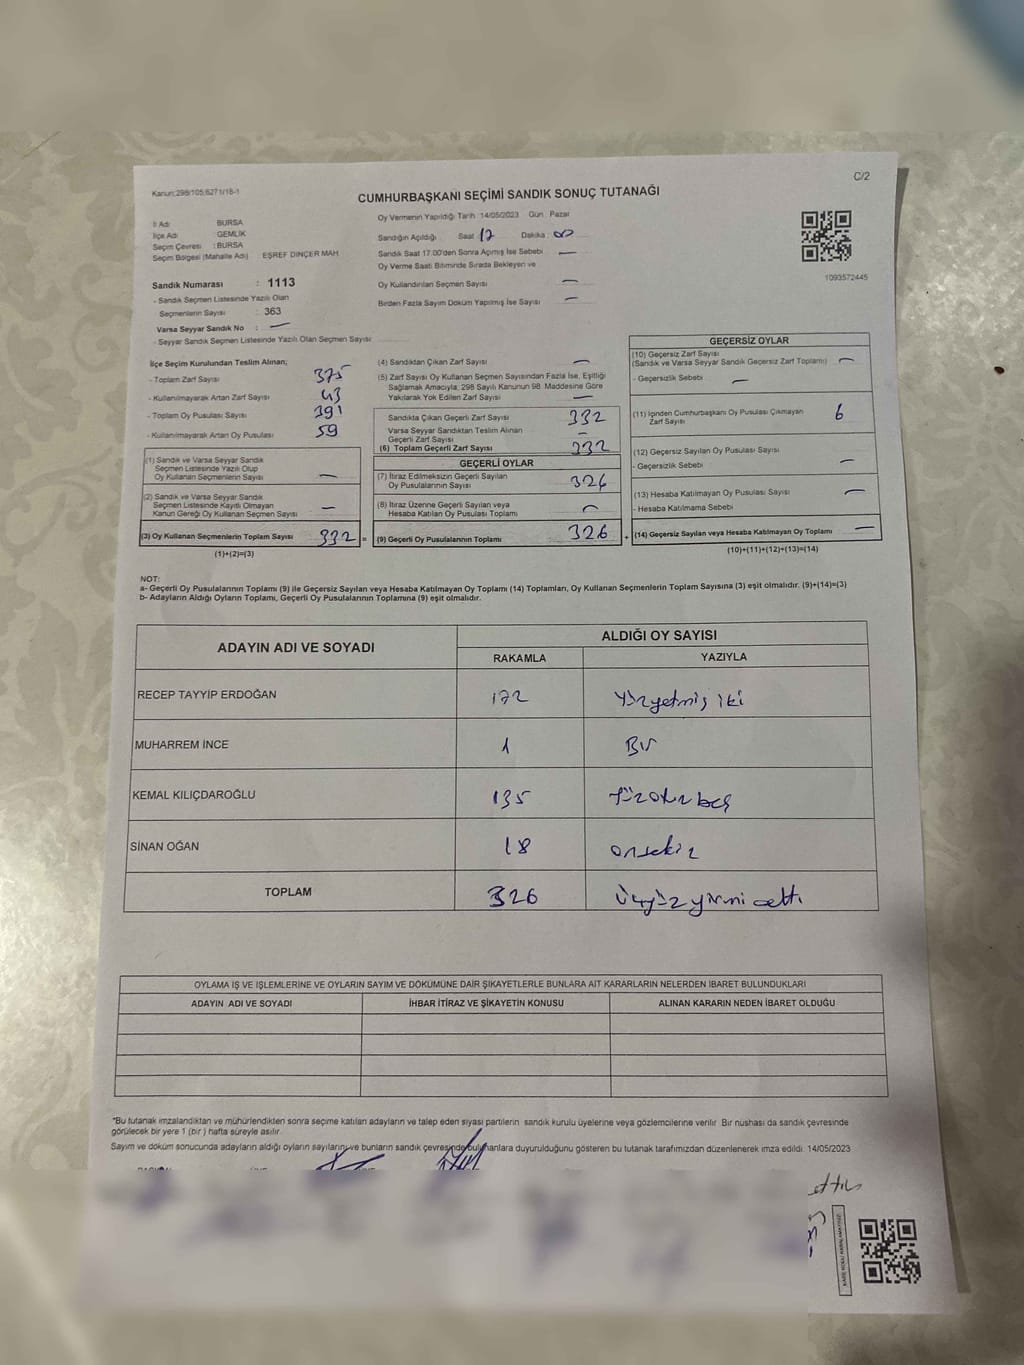 Kanun:298/105,6271/18-1
C/2
CUMHURBAŞKANI SEÇİMİ SANDIK SONUÇ TUTANAĞI
İl Adı : BURSA
İlçe Adı : GEMLİK
Seçim Çevresi : BURSA
Seçim Bölgesi (Mahalle Adı) EŞREF DİNÇER MAH
Oy Vermenin Yapıldığı Tarih 14/05/2023 Gün Pazar
Sandığın Açıldığı Saat 17 Dakika 00
Sandık Saat 17.00'den Sonra Açımış İse Sebebi —
Oy Verme Saati Bitiminde Sırada Bekleyen ve
Oy Kullandırılan Seçmen Sayısı —
Birden Fazla Sayım Döküm Yapılmış İse Sayısı —
1093572445
Sandık Numarası : 1113
- Sandık Seçmen Listesinde Yazılı Olan
Seçmenlerin Sayısı : 363
Varsa Seyyar Sandık No : —
- Seyyar Sandık Seçmen Listesinde Yazılı Olan Seçmen Sayısı
İlçe Seçim Kurulundan Teslim Alınan;
- Toplam Zarf Sayısı 375
- Kullanılmayarak Artan Zarf Sayısı 43
- Toplam Oy Pusulası Sayısı 391
- Kullanılmayarak Artan Oy Pusulası 59
(1) Sandık ve Varsa Seyyar Sandık
Seçmen Listesinde Yazılı Olup
Oy Kullanan Seçmenlerin Sayısı —
(2) Sandık ve Varsa Seyyar Sandık
Seçmen Listesinde Kayıtlı Olmayan
Kanun Gereği Oy Kullanan Seçmen Sayısı —
(3) Oy Kullanan Seçmenlerin Toplam Sayısı 332 =
(1)+(2)=(3)
(4) Sandıktan Çıkan Zarf Sayısı —
(5) Zarf Sayısı Oy Kullanan Seçmen Sayısından Fazla İse, Eşitliği
Sağlamak Amacıyla, 298 Sayılı Kanunun 98. Maddesine Göre
Yakılarak Yok Edilen Zarf Sayısı —
Sandıkta Çıkan Geçerli Zarf Sayısı 332
Varsa Seyyar Sandıktan Teslim Alınan
Geçerli Zarf Sayısı —
(6) Toplam Geçerli Zarf Sayısı 332
GEÇERLİ OYLAR
(7) İtiraz Edilmeksizin Geçerli Sayılan
Oy Pusulalarının Sayısı 326
(8) İtiraz Üzerine Geçerli Sayılan veya
Hesaba Katılan Oy Pusulası Toplamı —
(9) Geçerli Oy Pusulalarının Toplamı 326 +
GEÇERSİZ OYLAR
(10) Geçersiz Zarf Sayısı
(Sandık ve Varsa Seyyar Sandık Geçersiz Zarf Toplamı) —
- Geçersizlik Sebebi —
(11) İçinden Cumhurbaşkanı Oy Pusulası Çıkmayan
Zarf Sayısı 6
(12) Geçersiz Sayılan Oy Pusulası Sayısı
- Geçersizlik Sebebi —
(13) Hesaba Katılmayan Oy Pusulası Sayısı —
- Hesaba Katılmama Sebebi
(14) Geçersiz Sayılan veya Hesaba Katılmayan Oy Toplamı —
(10)+(11)+(12)+(13)=(14)
NOT:
a- Geçerli Oy Pusulalarının Toplamı (9) ile Geçersiz Sayılan veya Hesaba Katılmayan Oy Toplamı (14) Toplamları, Oy Kullanan Seçmenlerin Toplam Sayısına (3) eşit olmalıdır. (9)+(14)=(3)
b- Adayların Aldığı Oyların Toplamı, Geçerli Oy Pusulalarının Toplamına (9) eşit olmalıdır.
ADAYIN ADI VE SOYADI
ALDIĞI OY SAYISI
RAKAMLA YAZIYLA
RECEP TAYYİP ERDOĞAN 172 Yüzyetmiş iki
MUHARREM İNCE 1 Bir
KEMAL KILIÇDAROĞLU 135 Yüzotuz beş
SİNAN OĞAN 18 onsekiz
TOPLAM 326 üçyüz yirmi altı
OYLAMA İŞ VE İŞLEMLERİNE VE OYLARIN SAYIM VE DÖKÜMÜNE DAİR ŞİKAYETLERLE BUNLARA AİT KARARLARIN NELERDEN İBARET BULUNDUKLARI
ADAYIN ADI VE SOYADI İHBAR İTİRAZ VE ŞİKAYETİN KONUSU ALINAN KARARIN NEDEN İBARET OLDUĞU
*Bu tutanak imzalandıktan ve mühürlendikten sonra seçime katılan adayların ve talep eden siyasi partilerin sandık kurulu üyelerine veya gözlemcilerine verilir. Bir nüshası da sandık çevresinde
görülecek bir yere 1 (bir ) hafta süreyle asılır.
Sayım ve döküm sonucunda adayların aldığı oyların sayılarını ve bunların sandık çevresinde bulunanlara duyurulduğunu gösteren bu tutanak tarafımızdan düzenlenerek imza edildi. 14/05/2023